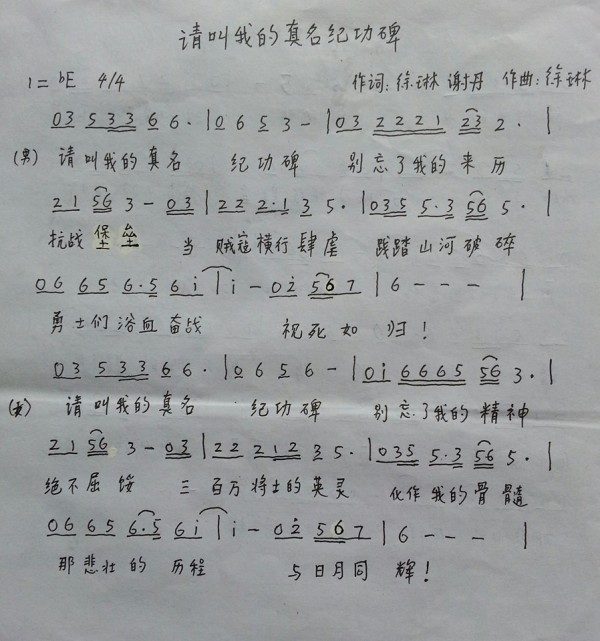 请叫我的真名纪功碑
1=ᵇE 4/4 作词:徐琳 谢丹 作曲:徐琳
03 533 6 6·|0 6 5 3-|03 2221 23 2·|
(男) 请叫我的真名 纪功碑 别忘了我的来历
21 56 3-03|22 2·1 3 5·|035 5·3 56 5·|
抗战堡垒 当贼寇横行肆虐 践踏山河破碎
06 65 6·5 6i|i-02 567|6---|
勇士们浴血奋战 视死如归!
03 533 6 6·|0 6 5 6-|0i 6665 56 3·|
(女) 请叫我的真名 纪功碑 别忘了我的精神
21 56 3-03|22 212 3 5·|035 5·3 56 5·|
绝不屈馁 三百万将士的英灵 化作我的骨髓
06 65 6·5 6i|i-02 567|6---|
那悲壮的历程 与日月同辉!